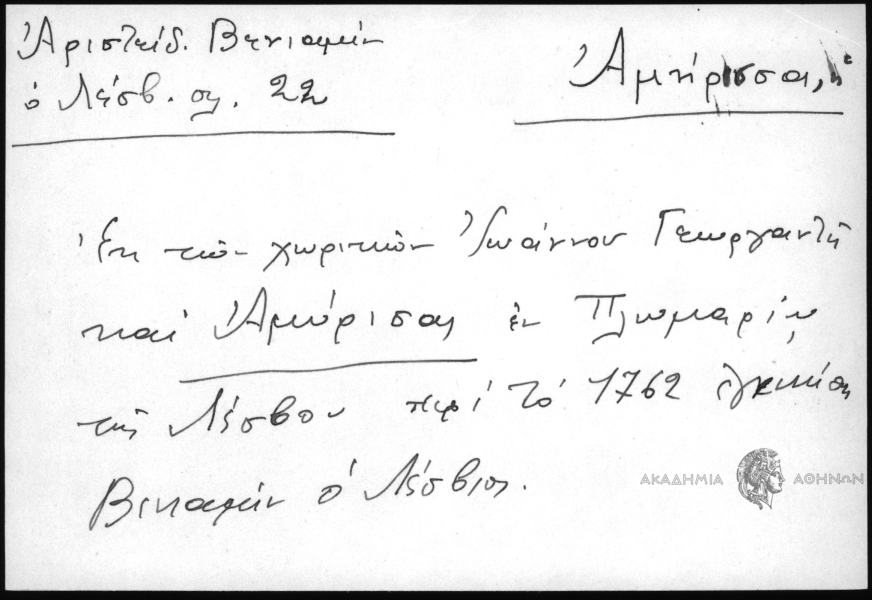 Ἀριστείδ. Βενιαμὶν
ὁ Λέσβ. σελ. 22
Ἀμήρισσα, ἡ
Ἐκ τῶν χωρικῶν Ἰωάννου Γεωργαντῆ
καὶ Ἀμύρισας ἐν Πλωμαρίῳ
τῆς Λέσβου περὶ τὸ 1762 ἐγεννήθη
Βενιαμὶν ὁ Λέσβιος.
ΑΚΑΔΗΜΙΑ ΑΘΗΝΩΝ